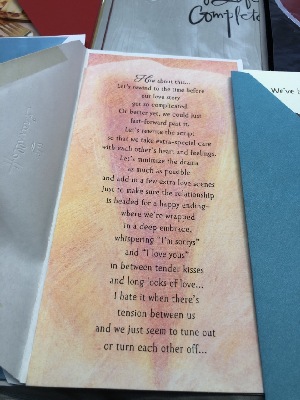 Complete
We've
How about this...
Let's rewind to the time before
our love story
got so complicated.
Or better yet, we could just
fast-forward past it.
Let's rewrite the script
so that we take extra-special care
with each other's heart and feelings.
Let's minimize the drama
as much as possible
and add in a few extra love scenes
just to make sure the relationship
is headed for a happy ending–
where we're wrapped
in a deep embrace,
whispering "I'm sorrys"
and "I love yous"
in between tender kisses
and long looks of love...
I hate it when there's
tension between us
and we just seem to tune out
or turn each other off...